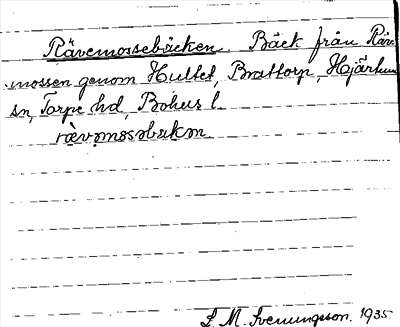 Rävemossebäcken. Bäck från Räve-
mossen genom Hultet, Brattorp, Hjärtum
sn, Torpe hd, Bohus l.
rävǝmosǝbäkǝn
L. M. Svenungsson. 1935